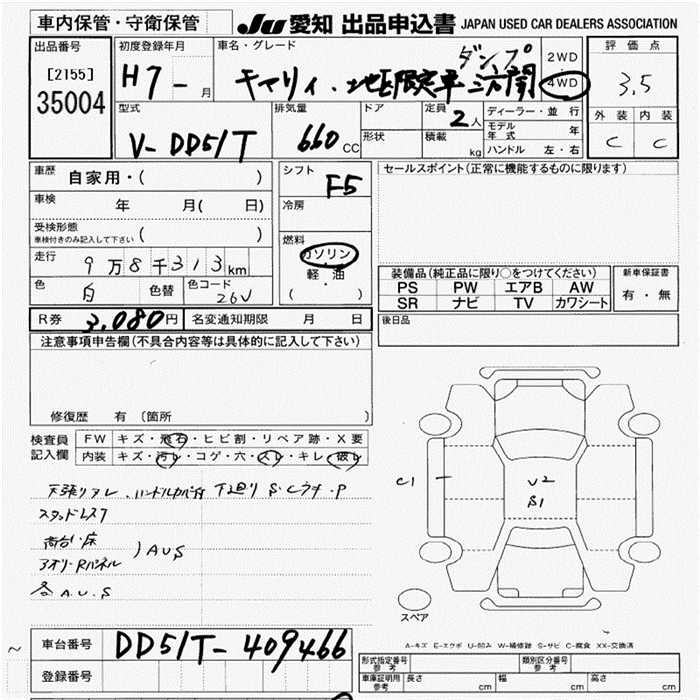 車内保管・守衛保管
JU 愛知 出品申込書 JAPAN USED CAR DEALERS ASSOCIATION
出品番号
[2155]
35004
初度登録年月
H7 - 月
車名・グレード
ダンプ
キャリィ
2WD
4WD
評価点
3.5
外装 内装
C C
型式
V-DD51T
排気量
660 CC
ドア
形状
定員
2人
積載
kg
ディーラー・並行
モデル年式 年
ハンドル 左・右
車歴 自家用・( )
車検 年 月( 日)
受検形態
車検付きのみ記入して下さい ( )
走行 9万8千313km
色 白 色替 色コード 26U
シフト F5
冷房
燃料
ガソリン
軽・油
( )
セールスポイント(正常に機能するものに限ります)
装備品(純正品に限り○をつけてください)
PS PW エアB AW
SR ナビ TV カワシート
新車保証書
有・無
R券 3,080円 名変通知期限 月 日
後日品
注意事項申告欄(不具合内容等は具体的に記入して下さい)
修復歴 有 (箇所
検査員
記入欄
FW キズ・飛石・ヒビ割・リペア跡・X要
内装 キズ・汚レ・コゲ・穴・スレ・キレ・破レ
下廻り S.C
スタッドレス7
荷台・床
アオリ・Rパネル
AUS
各 A.U.S
C1
U2
S1
スペア
A-キズ E-エクボ U-凹み W-補修跡 S-サビ C-腐食 XX-交換済
車台番号 DD51T-409466
登録番号
形式指定番号
参考
類別区分番号
参考
車庫証明用
参考
長さ cm 幅 cm 高さ cm